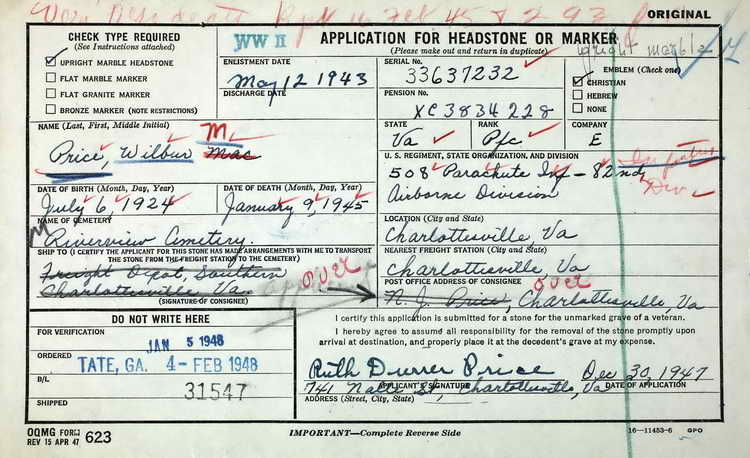 ORIGINAL
WW II
CHECK TYPE REQUIRED
(See Instructions attached)
UPRIGHT MARBLE HEADSTONE
FLAT MARBLE MARKER
FLAT GRANITE MARKER
BRONZE MARKER (NOTE RESTRICTIONS)
APPLICATION FOR HEADSTONE OR MARKER
(Please make out and return in duplicate)
ENLISTMENT DATE
May 12 1943
DISCHARGE DATE
SERIAL No.
33637232
PENSION No.
XC 3834228
EMBLEM (Check one)
CHRISTIAN
HEBREW
NONE
NAME (Last, First, Middle Initial)
Price, Wilbur Mac M.
STATE
Va
RANK
Pfc
COMPANY
E
U. S. REGIMENT, STATE ORGANIZATION, AND DIVISION
508 Parachute Inf - 82nd
Airborne Division
DATE OF BIRTH (Month, Day, Year)
July 6, 1924
DATE OF DEATH (Month, Day, Year)
January 9, 1945
NAME OF CEMETERY
Riverview Cemetery.
LOCATION (City and State)
Charlottesville, Va
SHIP TO (I CERTIFY THE APPLICANT FOR THIS STONE HAS MADE ARRANGEMENTS WITH ME TO TRANSPORT
THE STONE FROM THE FREIGHT STATION TO THE CEMETERY)
Freight Depot, Southern
Charlottesville Va.
over
(SIGNATURE OF CONSIGNEE)
NEAREST FREIGHT STATION (City and State)
Charlottesville, Va
POST OFFICE ADDRESS OF CONSIGNEE
over
N. J. Price, Charlottesville, Va
DO NOT WRITE HERE
FOR VERIFICATION
JAN 5 1948
ORDERED
TATE, GA. 4 - FEB 1948
B/L
31547
SHIPPED
I certify this application is submitted for a stone for the unmarked grave of a veteran.
I hereby agree to assume all responsibility for the removal of the stone promptly upon
arrival at destination, and properly place it at the decedent's grave at my expense.
Ruth Durrer Price Dec 30, 1947
APPLICANT'S SIGNATURE
DATE OF APPLICATION
St, Charlottesville, Va
ADDRESS (Street, City, State)
OQMG FORM
REV 15 APR 47 623
IMPORTANT—Complete Reverse Side
16-11453-6 GPO